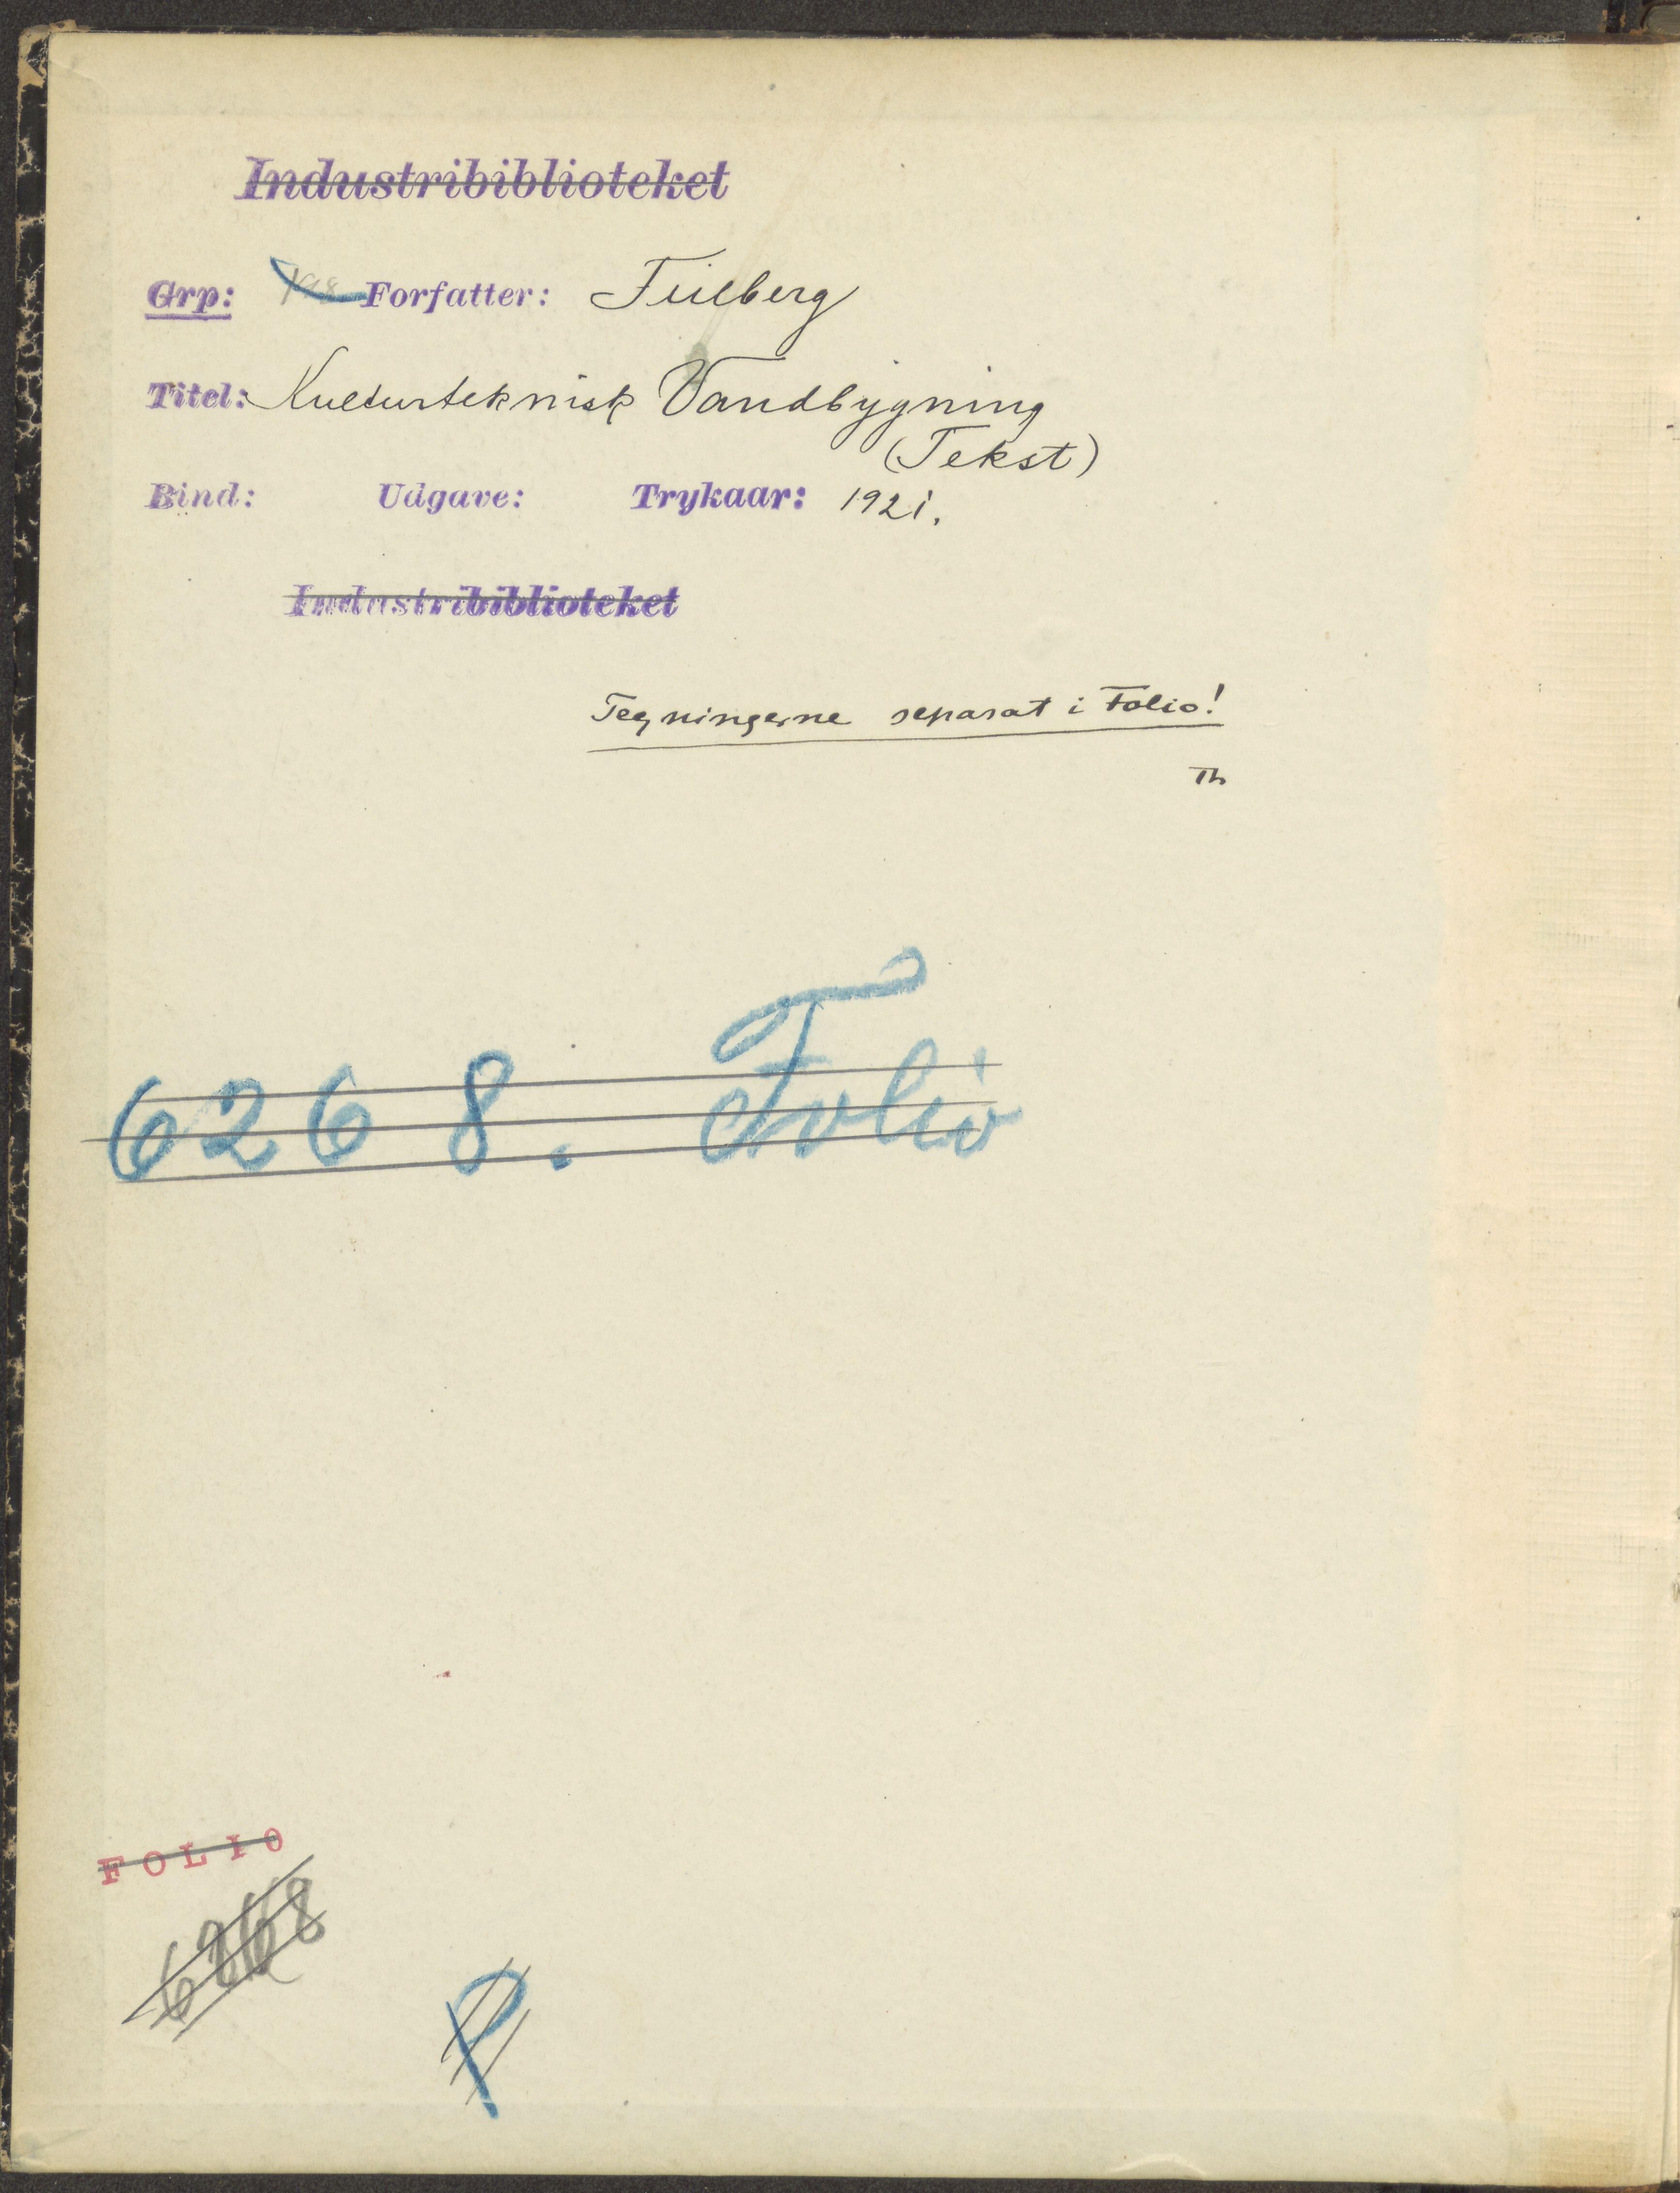 Industribiblioteket
Grp: 198 Forfatter: Feilberg
Titel: Kulturteknisk Vandbygning
(Tekst)
Bind: Udgave: Trykaar: 1921.
Industribiblioteket
Tegningerne separat i Folio!
Th
6268. Folio
FOLIO
6268
P